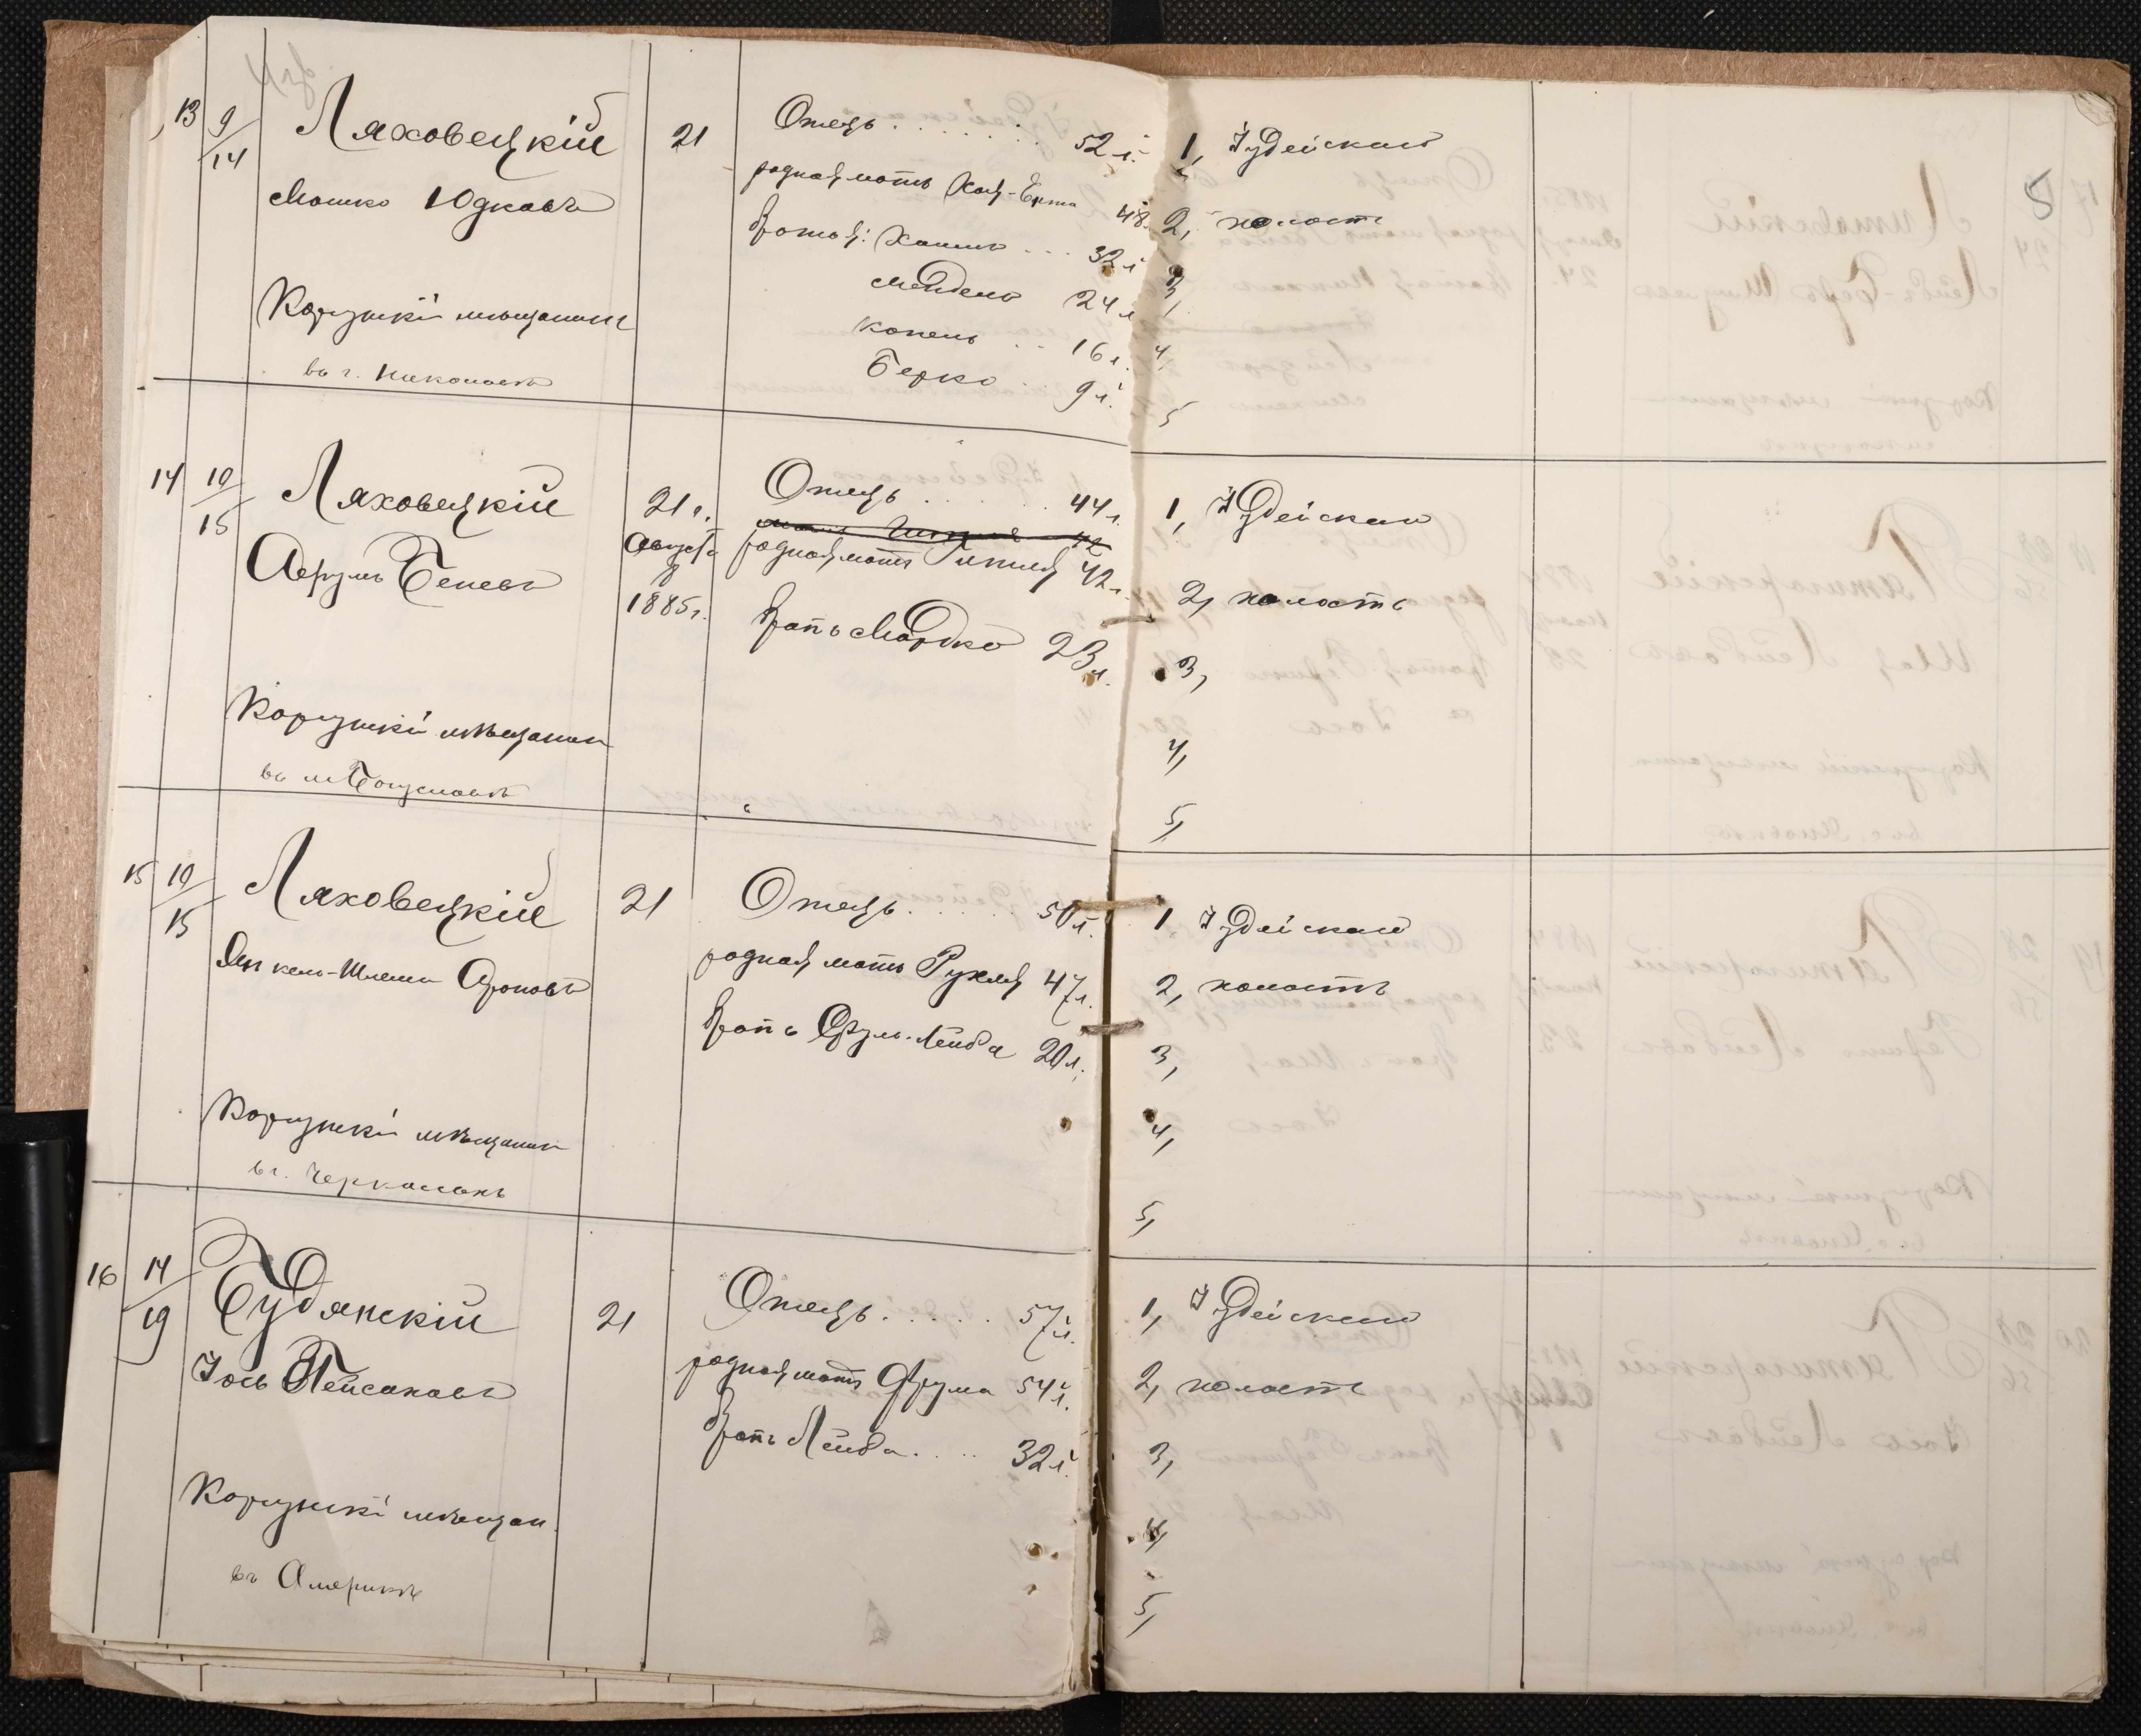 13 9/14 Ляховецкій 21 Отецъ . . . . . . 52 л.
Мошко Юдковъ родная мать Хая- 48
братья: Хаимъ . . . 32 л
Мендель 24 л
Корсунскій мѣщанинъ
копель . . 16 л.
въ г. Николаевѣ
Берко . . . 9 л.
14 10/15 Ляховецкій 21 г. Отецъ . . . . . . 44 л.
42
Августа родная мать 42 л.
Аврумъ Беневъ
8
1885 г.
братъ Мордко 23 л.
Корсунскій мѣщанин
въ м Богуславѣ
15 10/15 Ляховецкій 21 Отецъ . . . . . . 50 л.
Янкель-Шлема Ароновъ родная мать Рухля 47 л.
братъ Аврум-Лейба 20 л.
Корсунскій мѣщанин
в г. Черкассахъ
16 14/19 Будянскій 21 Отецъ . . . . . 57 л.
Іось Пейсаховъ родная мать Фрума 54 л.
братъ Лейба . . . . 32 л.
Корсунскій мѣщан.
въ Америкѣ
5
1, Іудейская
2, холостъ
3,
4,
5
1, Іудейская
2, холостъ
3,
4,
5,
1 Іудейская
2, холостъ
3,
4,
5,
1, Іудейская
2, холостъ
3,
4,
5,